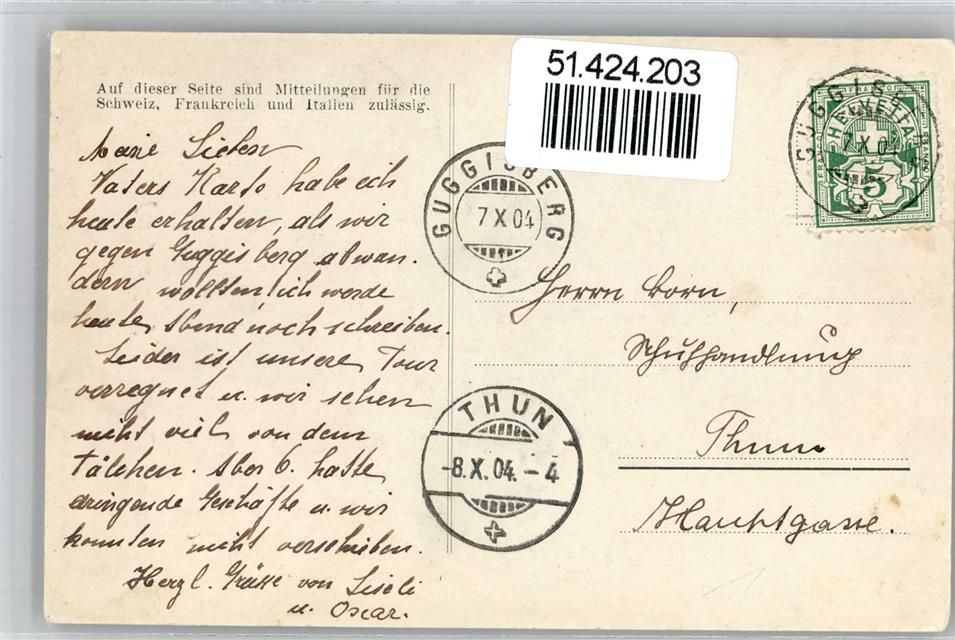 Auf dieser Seite sind Mitteilungen für die
Schweiz, Frankreich und Italien zulässig.
51.424.203
Meine Lieben
Vaters Karte habe ich
heute erhalten, als wir
gegen Guggisberg abwan-
dern wollten ich werde
heute Abend noch schreiben.
Leider ist unsere Tour
verregnet u. wir sehen
nicht viel von dem
Tälchen. Aber O. hatte
dringende Geschäfte u. wir
konnten nicht verschieben.
Herzl. Grüsse von Liseli
u. Oscar.
GUGGISBERG
7 X 04
GUGGISB
7 X 04
HELVETIA
5
Herrn Born,
Schuhhandlung
Thun
Hauptgasse.
THUN
-8.X.04.-4